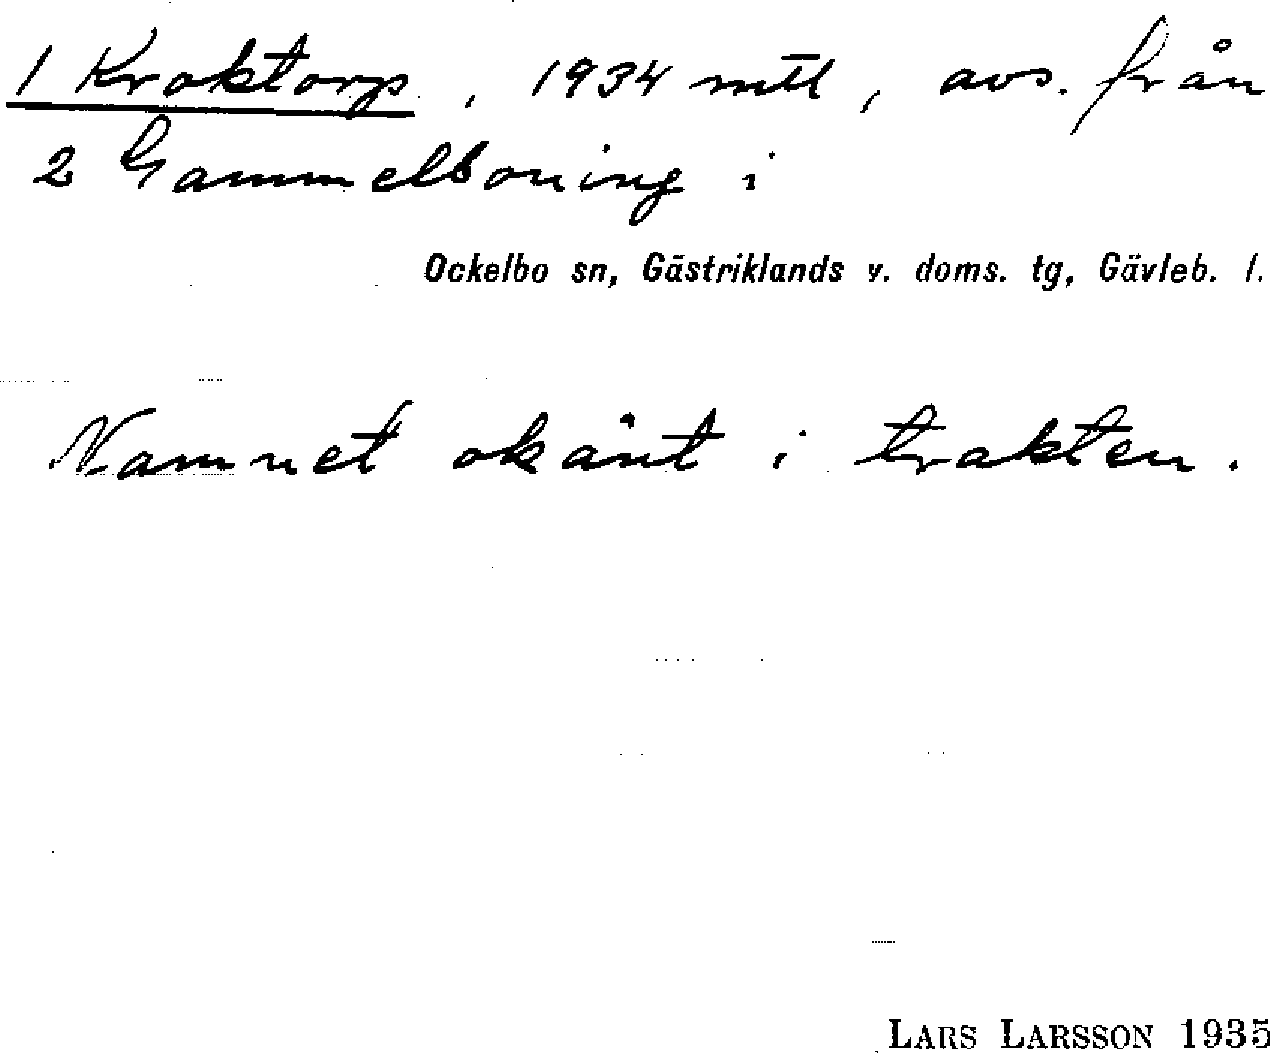 1 Kroktorp, 1934 mtl, avs. från
2 Gammelboning i
Ockelbo sn, Gästriklands v. doms. tg, Gävleb. l.
Namnet okänt i trakten.
LARS LARSSON 1935